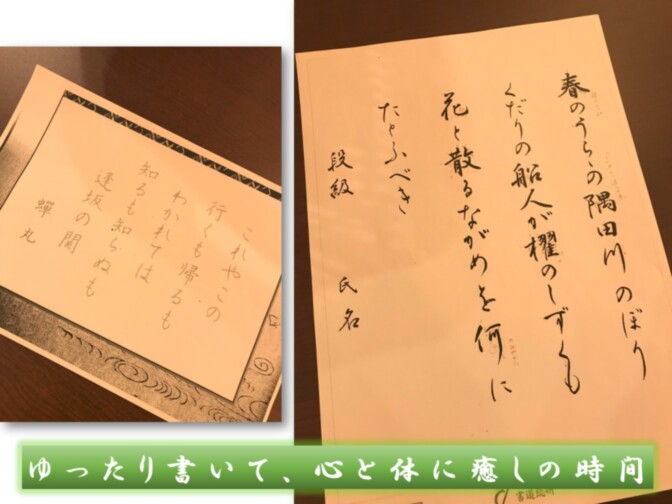 春のうらゝの隅田川のぼり
くだりの船人が櫂のしずくも
花と散るながめを何に
たとふべき
段級
氏名
これやこの
行くも帰るも
わかれては
知るも知らぬも
逢坂の関
蟬丸
ゆったり書いて、心と体に癒しの時間